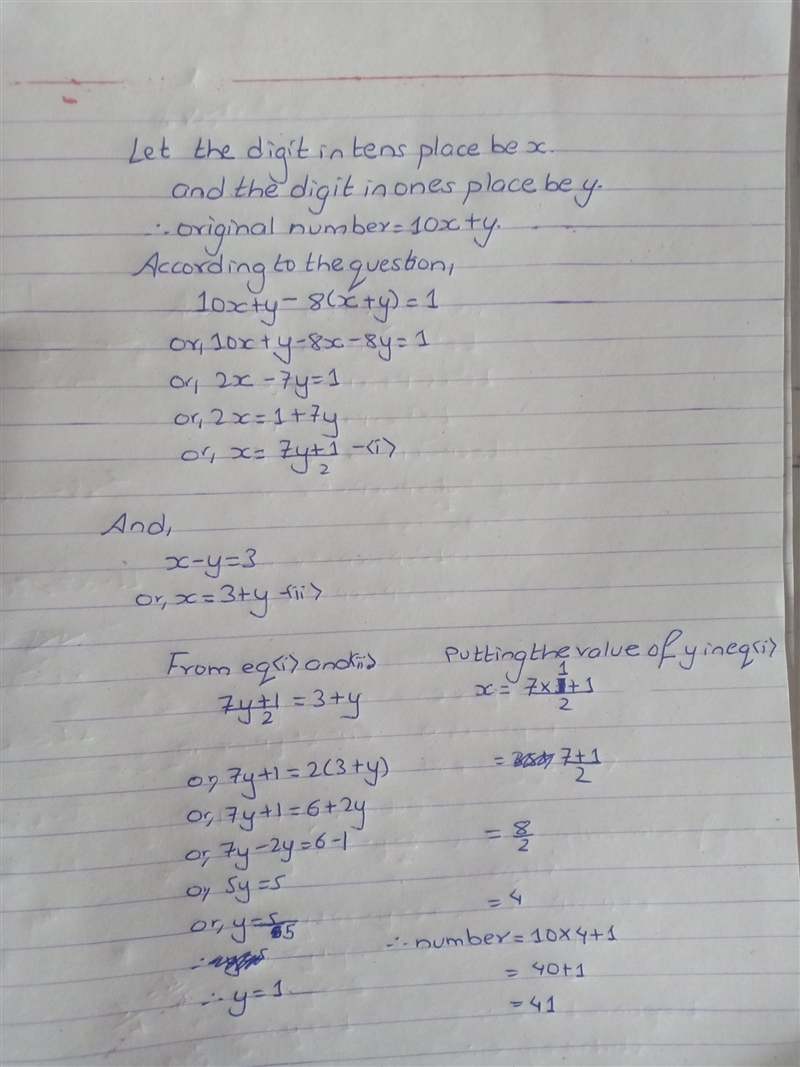 Let the digit in tens place be x.
and the digit in ones place be y.
∴ original number = 10x+y.
According to the question,
10x+y - 8(x+y) = 1
or, 10x+y-8x-8y=1
or, 2x - 7y=1
or, 2x = 1+7y
or, x = (7y+1)/2 -<i>
And,
x-y=3
or, x = 3+y -<ii>
From eq<i> and<ii>
(7y+1)/2 = 3+y
or, 7y+1 = 2(3+y)
or, 7y+1 = 6+2y
or, 7y-2y=6-1
or, 5y=5
or, y=5/5
∴ y=1
Putting the value of y in eq<i>
x = (7×1+1)/2
= (7+1)/2
= 8/2
= 4
∴ number = 10×4+1
= 40+1
= 41